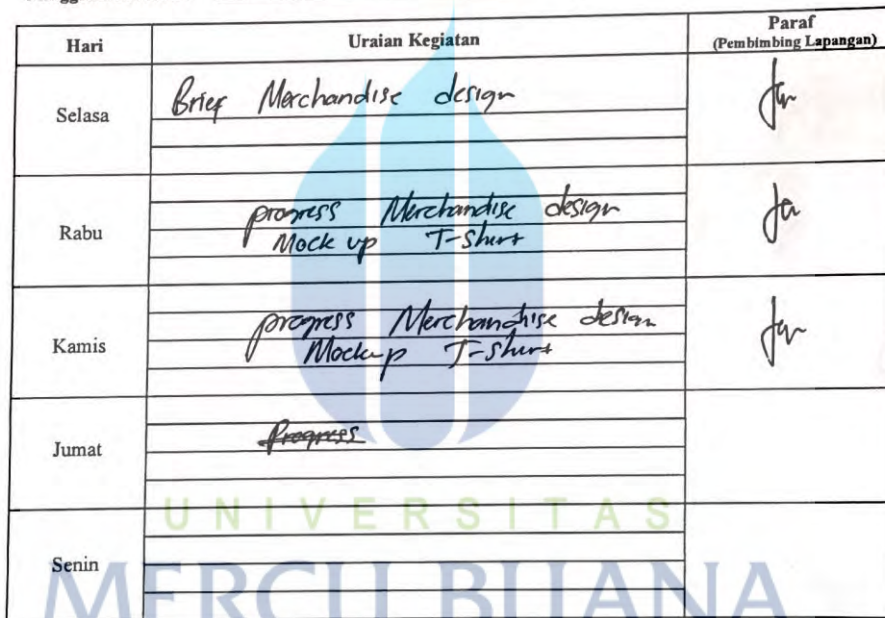 Hari Uraian Kegiatan Paraf
(Pembimbing Lapangan)
Selasa
Brief Merchandise design
Rabu
progress Merchandise design
Mock up T-Shirt
Kamis
progress Merchandise design
Mockup T-Shirt
Jumat
Progress
Senin
UNIVERSITAS
MERCU BUANA